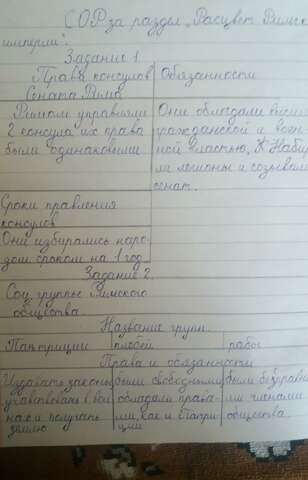 СОР за раздел „Расцвет Римск
империи".
Задание 1.
Права консулов
Сената Рима
Обязанности
Римом управляли
2 консула их права
были одинаковыми
Они обладали высшей
гражданской и воен-
ной властью,
Набира
ли легионы и созывали
сенат.
Сроки правления
консулов
Они избирались наро-
дом сроком на 1 год.
Задание 2.
Соц группы Римского
общества.
Название групп.
Патриции плебеи рабы
Права и обязанности
Издавать законы
участвовать в вой
нах и получать
землю
были свободными
обладали права-
ми, как и патри
ции
были безправны
ми членами
общества